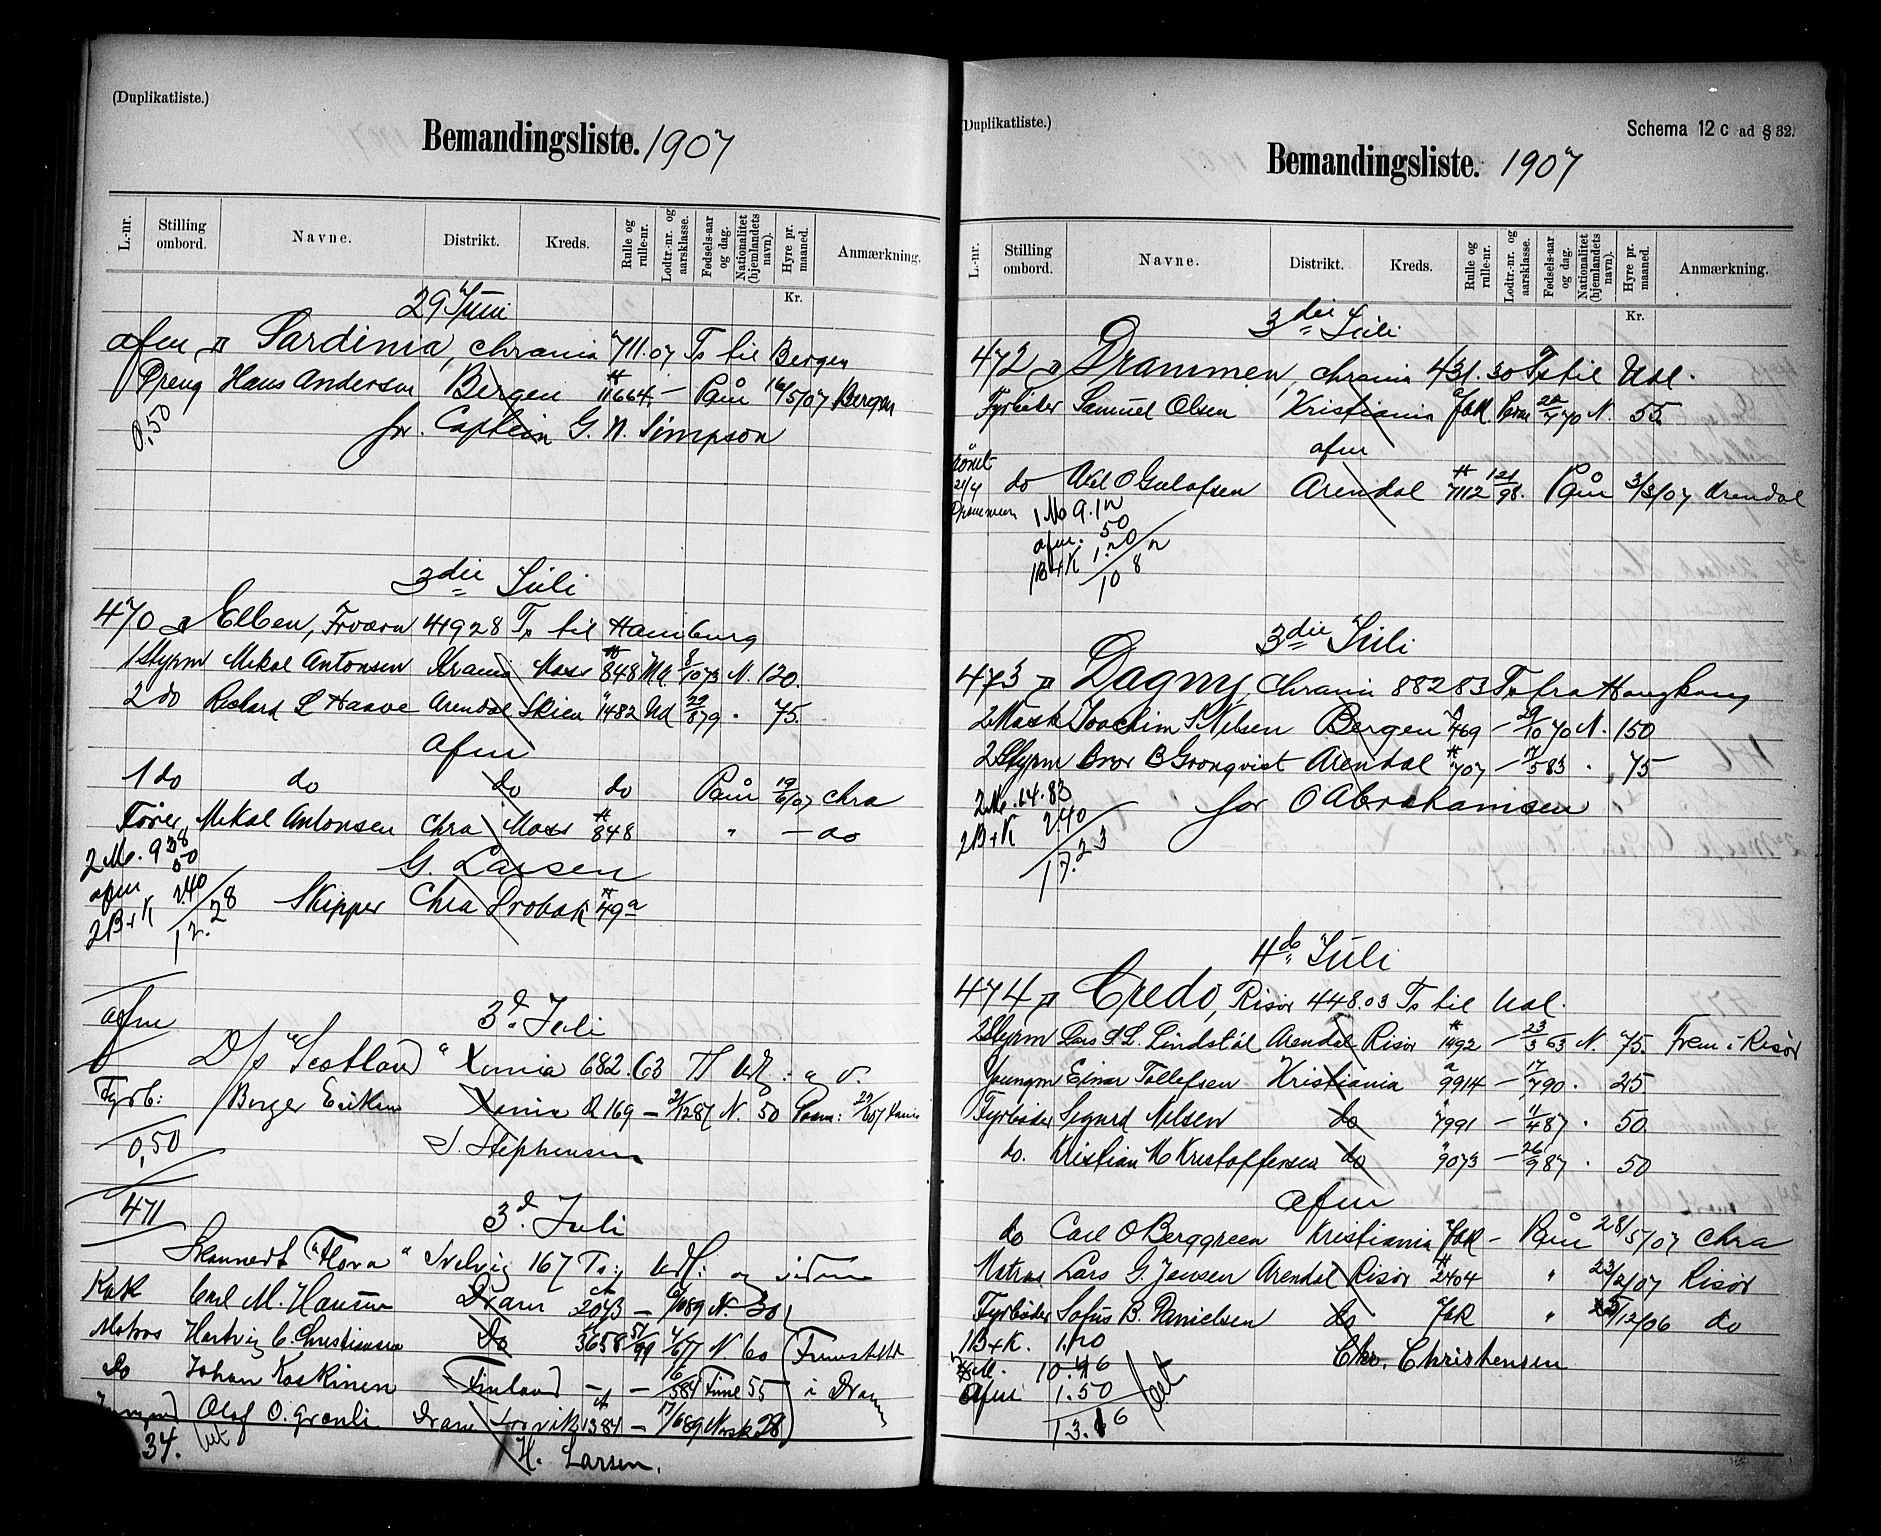 (Duplikatliste.)
Bemandingsliste. 1907
L.-nr. Stilling ombord. Navne. Distrikt. Kreds. Rulle og rulle-nr. Lodtr.-nr. og aarsklasse. Fødsels-aar og dag. Nationalitet (hjemlandets navn). Hyre pr. maaned. Anmærkning.
Kr.
29 Juni
afm Sardinia, chrania 711.07 Ts til Bergen
Dreng Hans Andersen Bergen 11664 — Paam 16/5/07 Bergen
0,50
for Captein G. N. Simpson
3die Juli
470 Elben, Tvørn 41928 Ts til Hamburg
1 Styrm Mikal Antonsen Krania Moss 848 8/10 73 N. 120.
2 do Richard L Haave Arendal Skien 1482 22/8 79 . 75.
afm
1 do do do do Paam 19/6/07 chra
Fører Mikal Antonsen Chra Moss 848 " — do
2 M. 9 38
G. Larsen
afm 50
2 B+K 2.40
12.28
Skipper Chra Drøbak 49a
afm
3d. Juli
D/s "Scotland" Xania 682.63 T
Fyrb: Birger Eriksen Xania 169 — 87 N. 50
0,50
S. Stephensen
471
3d. Juli
"Flora" Svelvig 167 Ts:
Kok Carl M. Hansen Dram 2073 — 89 N. 30
Matros Hartvig C. Christiansen Do 3658 77 N 60 Fremstillet
Do Johan Koskinen Finland — — 16/5 84 Finl 55 i Dram
Olaf O. Grønli Dram 1384 — 17/6 89 Norsk 28
34.
H. Larsen.
(Duplikatliste.)
Schema 12 c ad § 32.
Bemandingsliste. 1907
L.-nr. Stilling ombord. Navne. Distrikt. Kreds. Rulle og rulle-nr. Lodtr.-nr. og aarsklasse. Fødsels-aar og dag. Nationalitet (hjemlandets navn). Hyre pr. maaned. Anmærkning.
Kr.
3die Juli
472 Drammen, chrania 431.30 Ts til Udl.
Fyrbøder Samuel Olsen Kristiania 70 N. 55.
afm
do Axel O Gulofsen Arendal 7112 121/98. Paam 3/3/07 Arendal
1 M 9.12
afm. 50
1 B+K 1.20
10 82
3die Juli
473 Dagny, chrania 88283 Ts fra Hongkong
2 Mask Joachim S. Nilsen Bergen 469 — 29/10 70 N. 150
2 Styrm Bror B Gronqvist Arendal 707 — 17/5 83 . 75
2 M. 14.83
for O Abrahamsen
2 B+K 2.40
17.23
4de Juli
474 Credo, Risør 448.03 Ts til Udl.
2 Styrm Lars S L. Lindstøl Arendal Risør 1492 — 23/3 63 N. 75. Frem i Risør
Jungm Einar Tollefsen Kristiania 9914 — 17/7 90 . 25.
Fyrbøder Sigurd Nilsen do 7991 — 11/4 87 . 50
do. Kristian M Kristoffersen do 9073 — 26/9 87 . 50
afm
do Carl O Berggreen Kristiania — Paam 28/5/07 Chra
Matros Lars G. Jensen Arendal Risør 2404 " 23/2/07 Risør
Fyrbøder Sofus B. Danielsen do " /12/06 do
1 B+K. 1.20
M. 10.46
Chr. Christensen
Afm 1.50
13.16